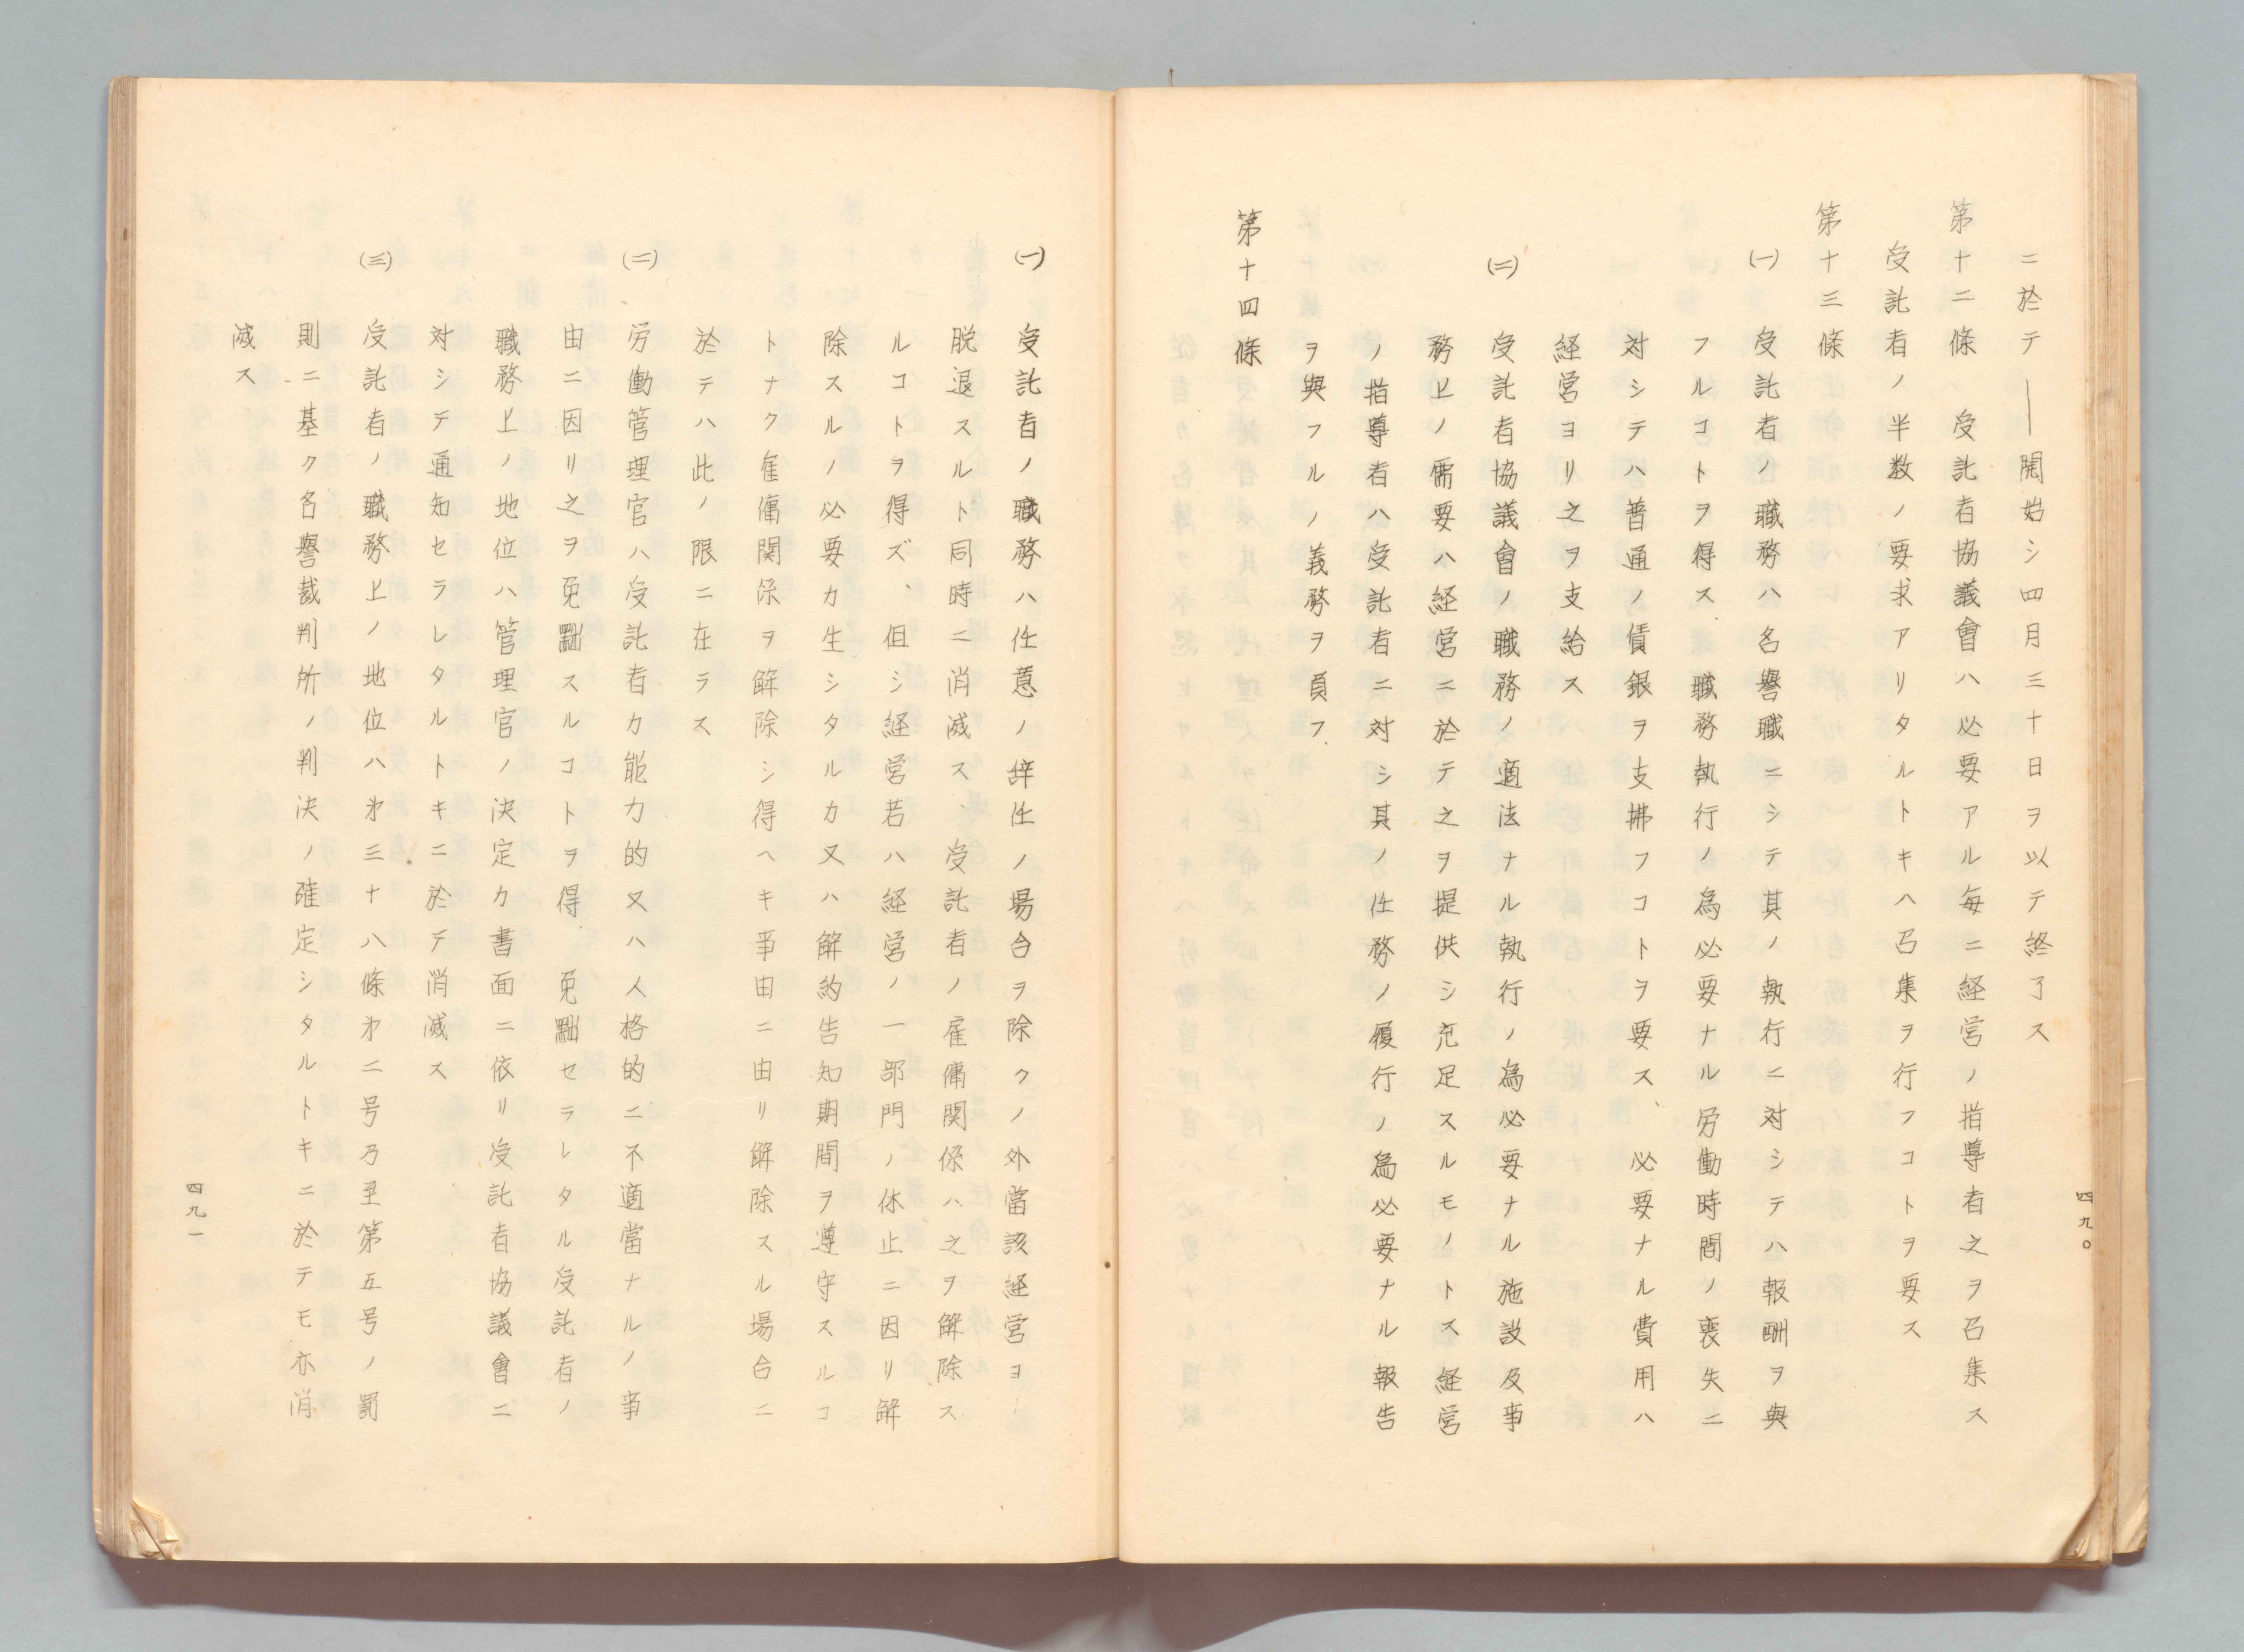 ニ於テ――開始シ四月三十日ヲ以テ終了ス
第十二條　受託者協議會ハ必要アル毎ニ経営ノ指導者之ヲ召集ス
受託者ノ半数ノ要求アリタルトキハ召集ヲ行フコトヲ要ス
第十三條
(一)　受託者ノ職務ハ名譽職ニシテ其ノ執行ニ対シテハ報酬ヲ與
フルコトヲ得ス　職務執行ノ為必要ナル労働時間ノ喪失ニ
対シテハ普通ノ賃銀ヲ支拂フコトヲ要ス、必要ナル費用ハ
経営ヨリ之ヲ支給ス
(二)　受託者協議會ノ職務ノ適法ナル執行ノ為必要ナル施設及事
務上ノ需要ハ経営ニ於テ之ヲ提供シ充足スルモノトス経営
ノ指導者ハ受託者ニ対シ其ノ任務ノ履行ノ為必要ナル報告
ヲ與フルノ義務ヲ負フ
第十四條
四九〇
(一)　受託者ノ職務ハ任意ノ辞任ノ場合ヲ除クノ外當該経営ヨリ
脱退スルト同時ニ消滅ス、受託者ノ雇傭関係ハ之ヲ解除ス
ルコトヲ得ズ、但シ経営若ハ経営ノ一部門ノ休止ニ因リ解
除スルノ必要カ生シタルカ又ハ解約告知期間ヲ遵守スルコ
トナク雇傭関係ヲ解除シ得ヘキ事由ニ由リ解除スル場合ニ
於テハ此ノ限ニ在ラス
(二)　労働管理官ハ受託者カ能力的又ハ人格的ニ不適當ナルノ事
由ニ因リ之ヲ免黜スルコトヲ得　免黜セラレタル受託者ノ
職務上ノ地位ハ管理官ノ決定カ書面ニ依リ受託者協議會ニ
対シテ通知セラレタルトキニ於テ消滅ス
(三)　受託者ノ職務上ノ地位ハ第三十八條第二号乃至第五号ノ罰
則ニ基ク名譽裁判所ノ判決ノ確定シタルトキニ於テモ亦消
滅ス
四九一